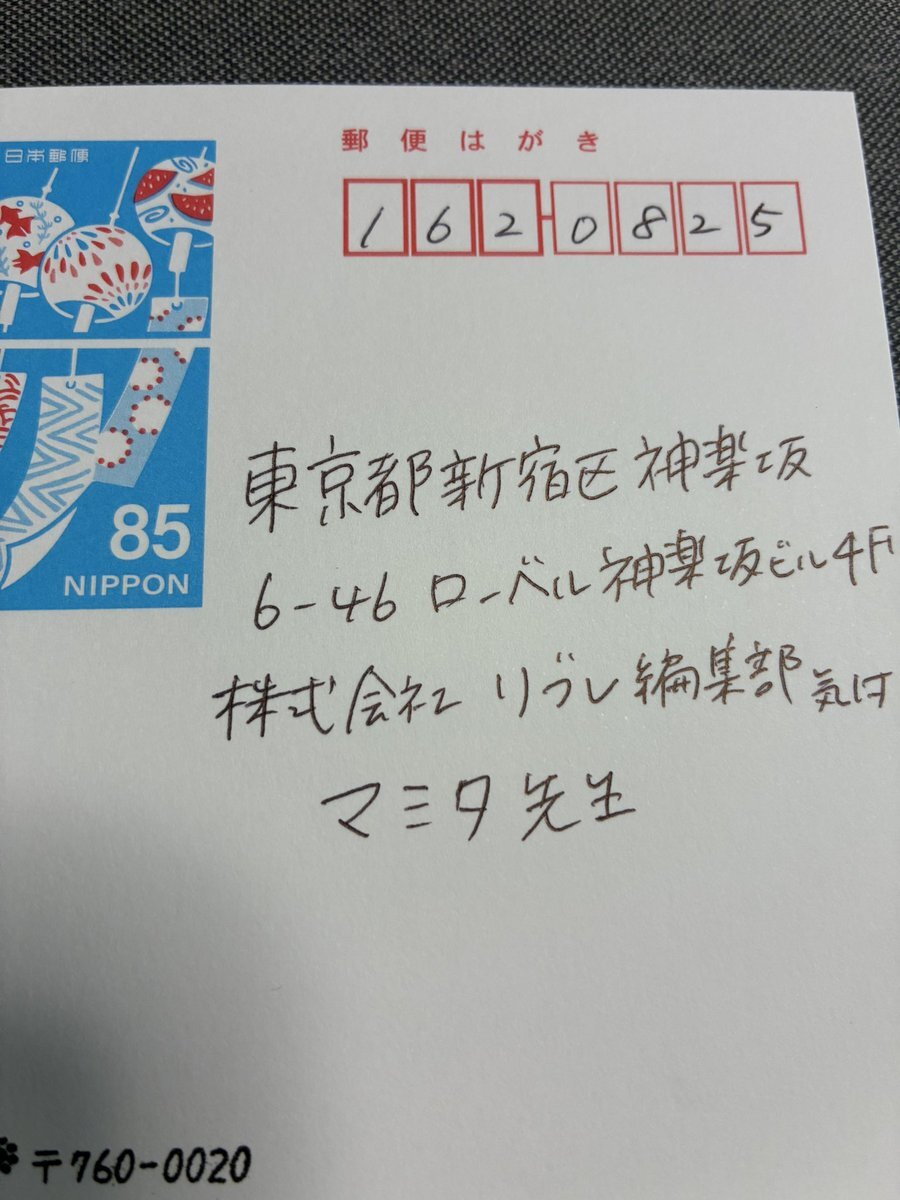 日本郵便
郵便はがき
162-0825
85
NIPPON
東京都新宿区神楽坂
6-46 ローベル神楽坂ビル4F
株式会社 リブレ編集部 気付
マミタ先生
〒760-0020